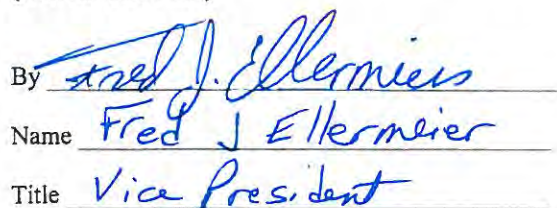 By Fred J. Ellermeier
Name Fred J Ellermeier
Title Vice President